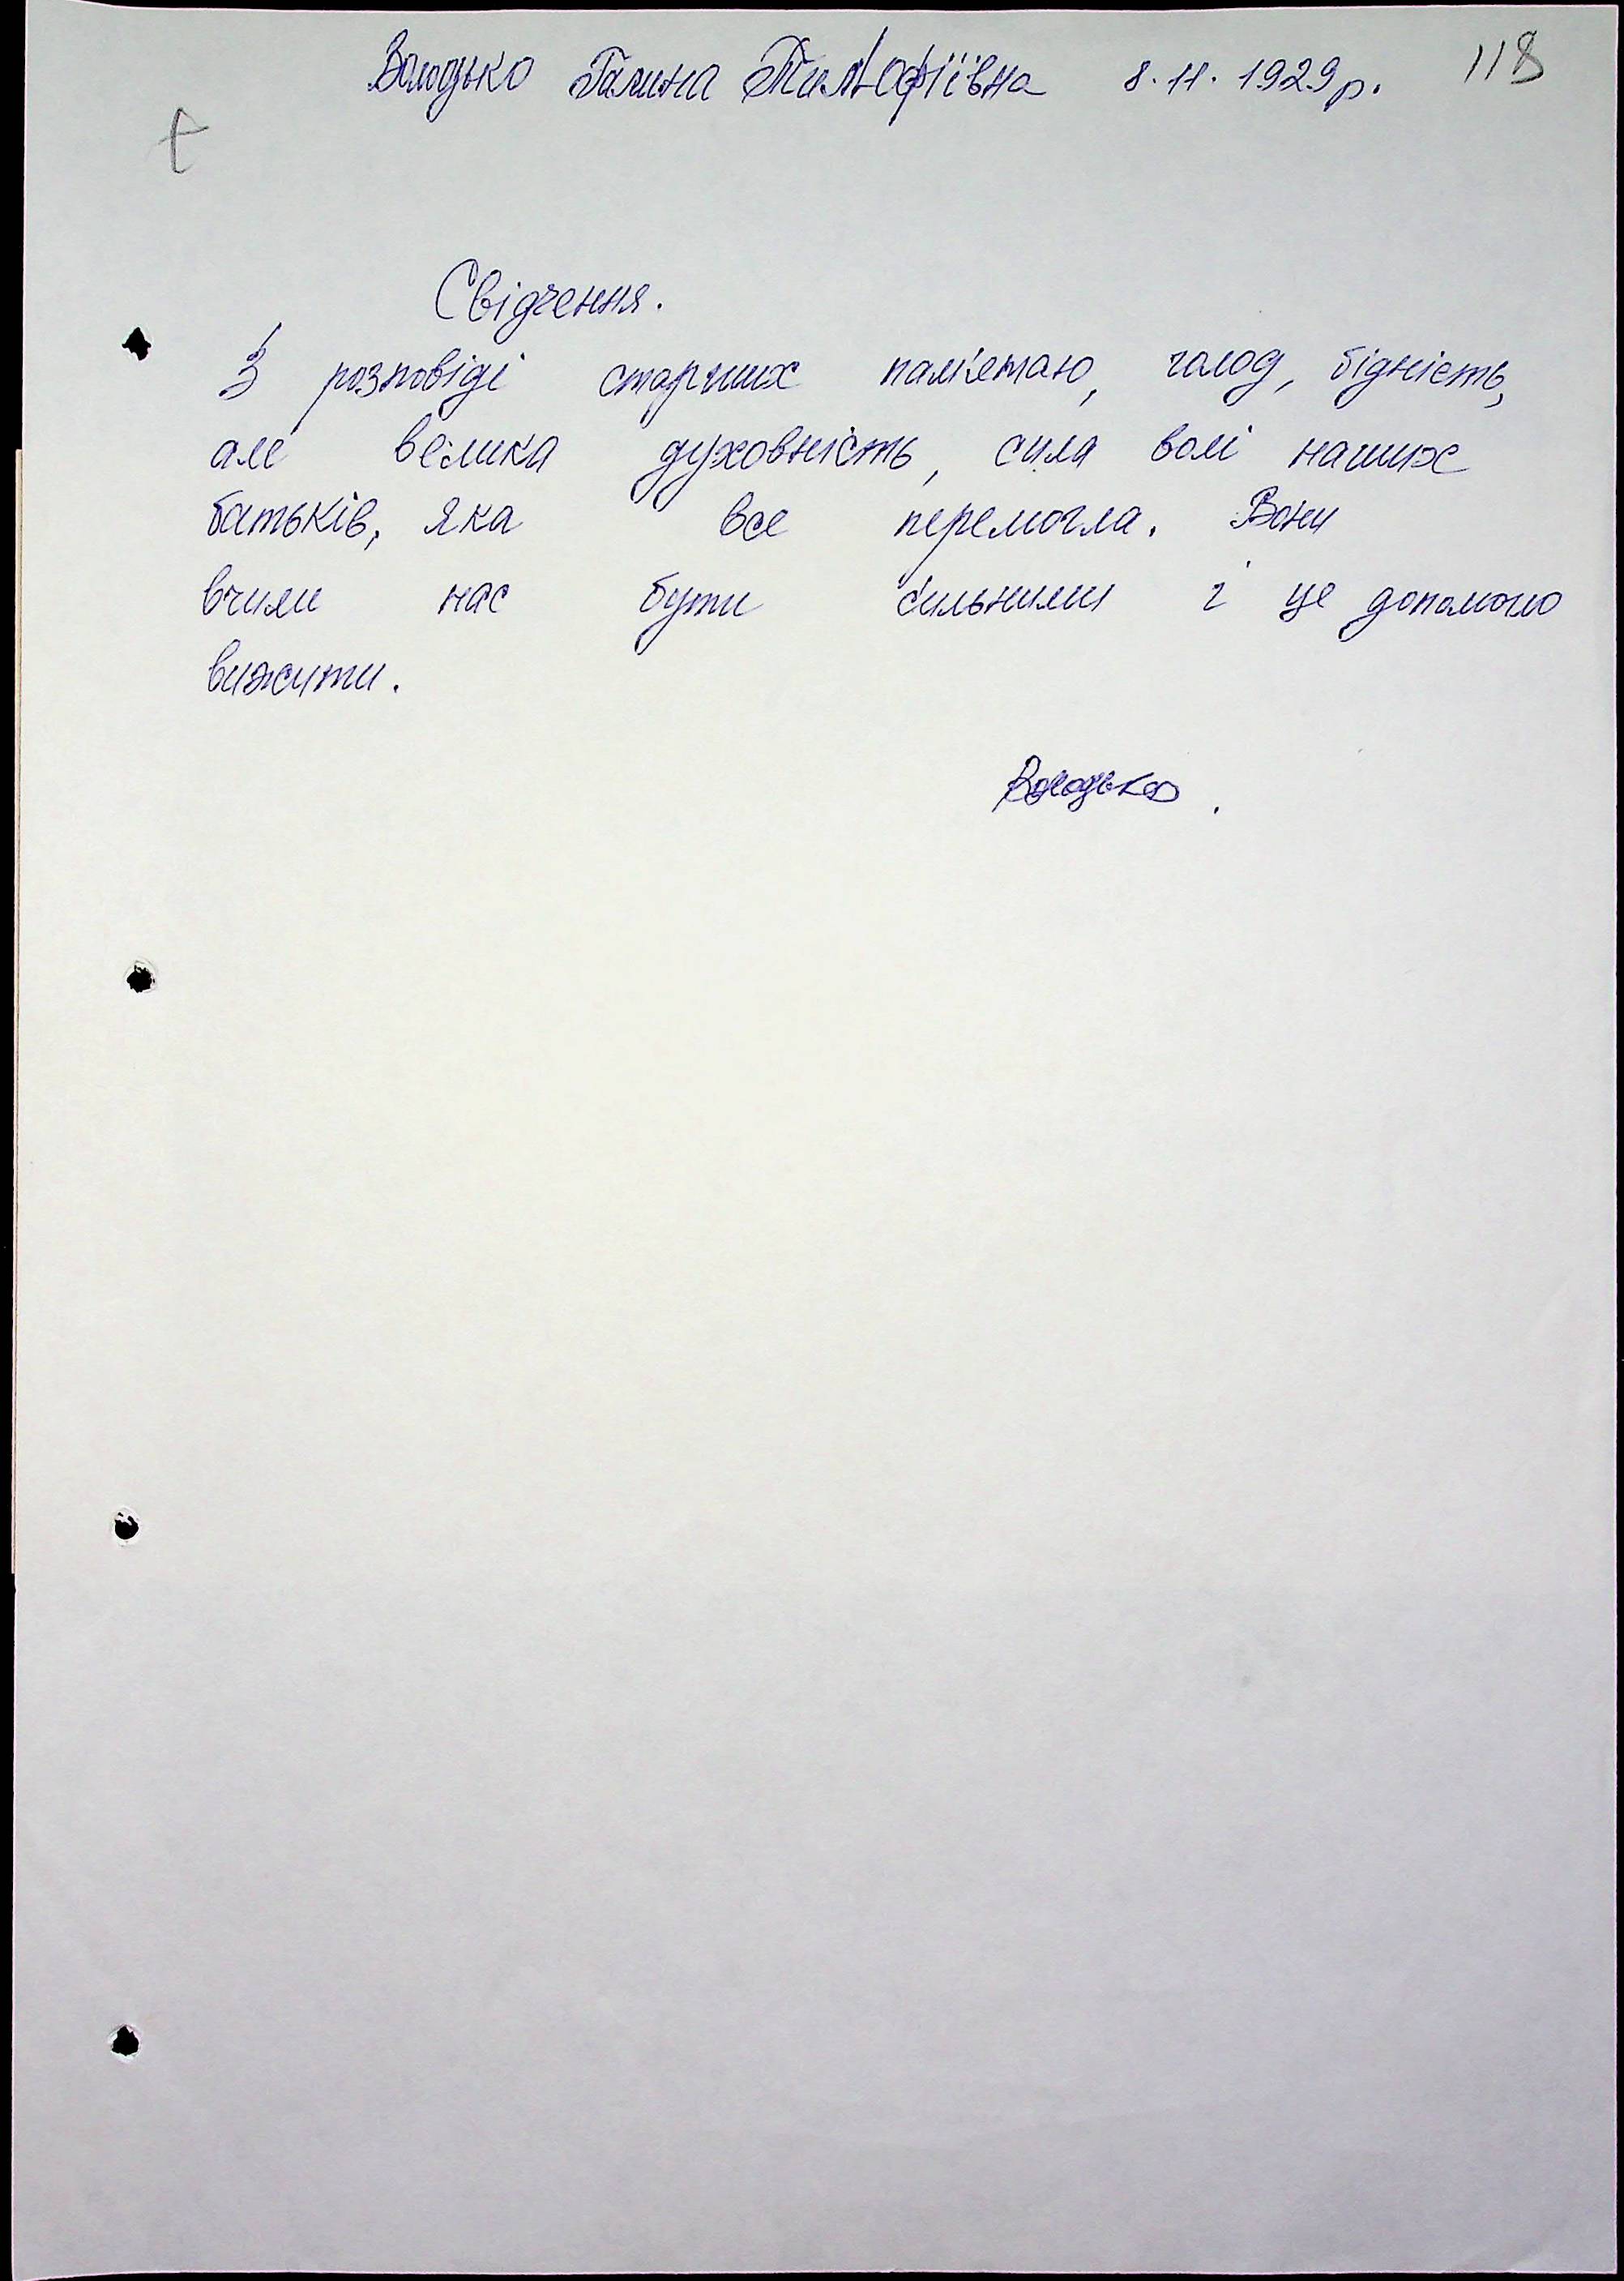 Володько Галина Тимофіївна 8.11.1929р. 118
t
Свідчення.
З розповіді старших пам'ятаю, голод, бідність,
але велика духовність, сила волі наших
батьків, яка все перемогла. Вони
вчили нас бути сильними і це допомогло
вижити.
Володько.